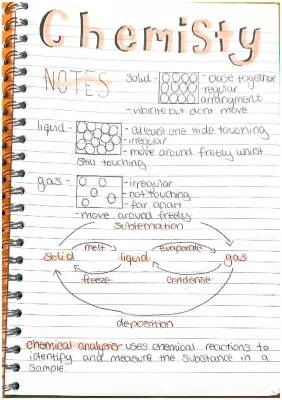 Chemisty
NOTES
solid - - close together
- regular
arrangment
- vibrate but dont move
liquid - - atleast one side touching
- irregular
- move around freely whilst
still touching
gas - - irregular
- not touching
- far apart
- move around freely
sublimation
melt evaporate
solid liquid gas
freeze condense
deposition
chemical analysis uses chemical reactions to
identify and measure the substance in a
sample.